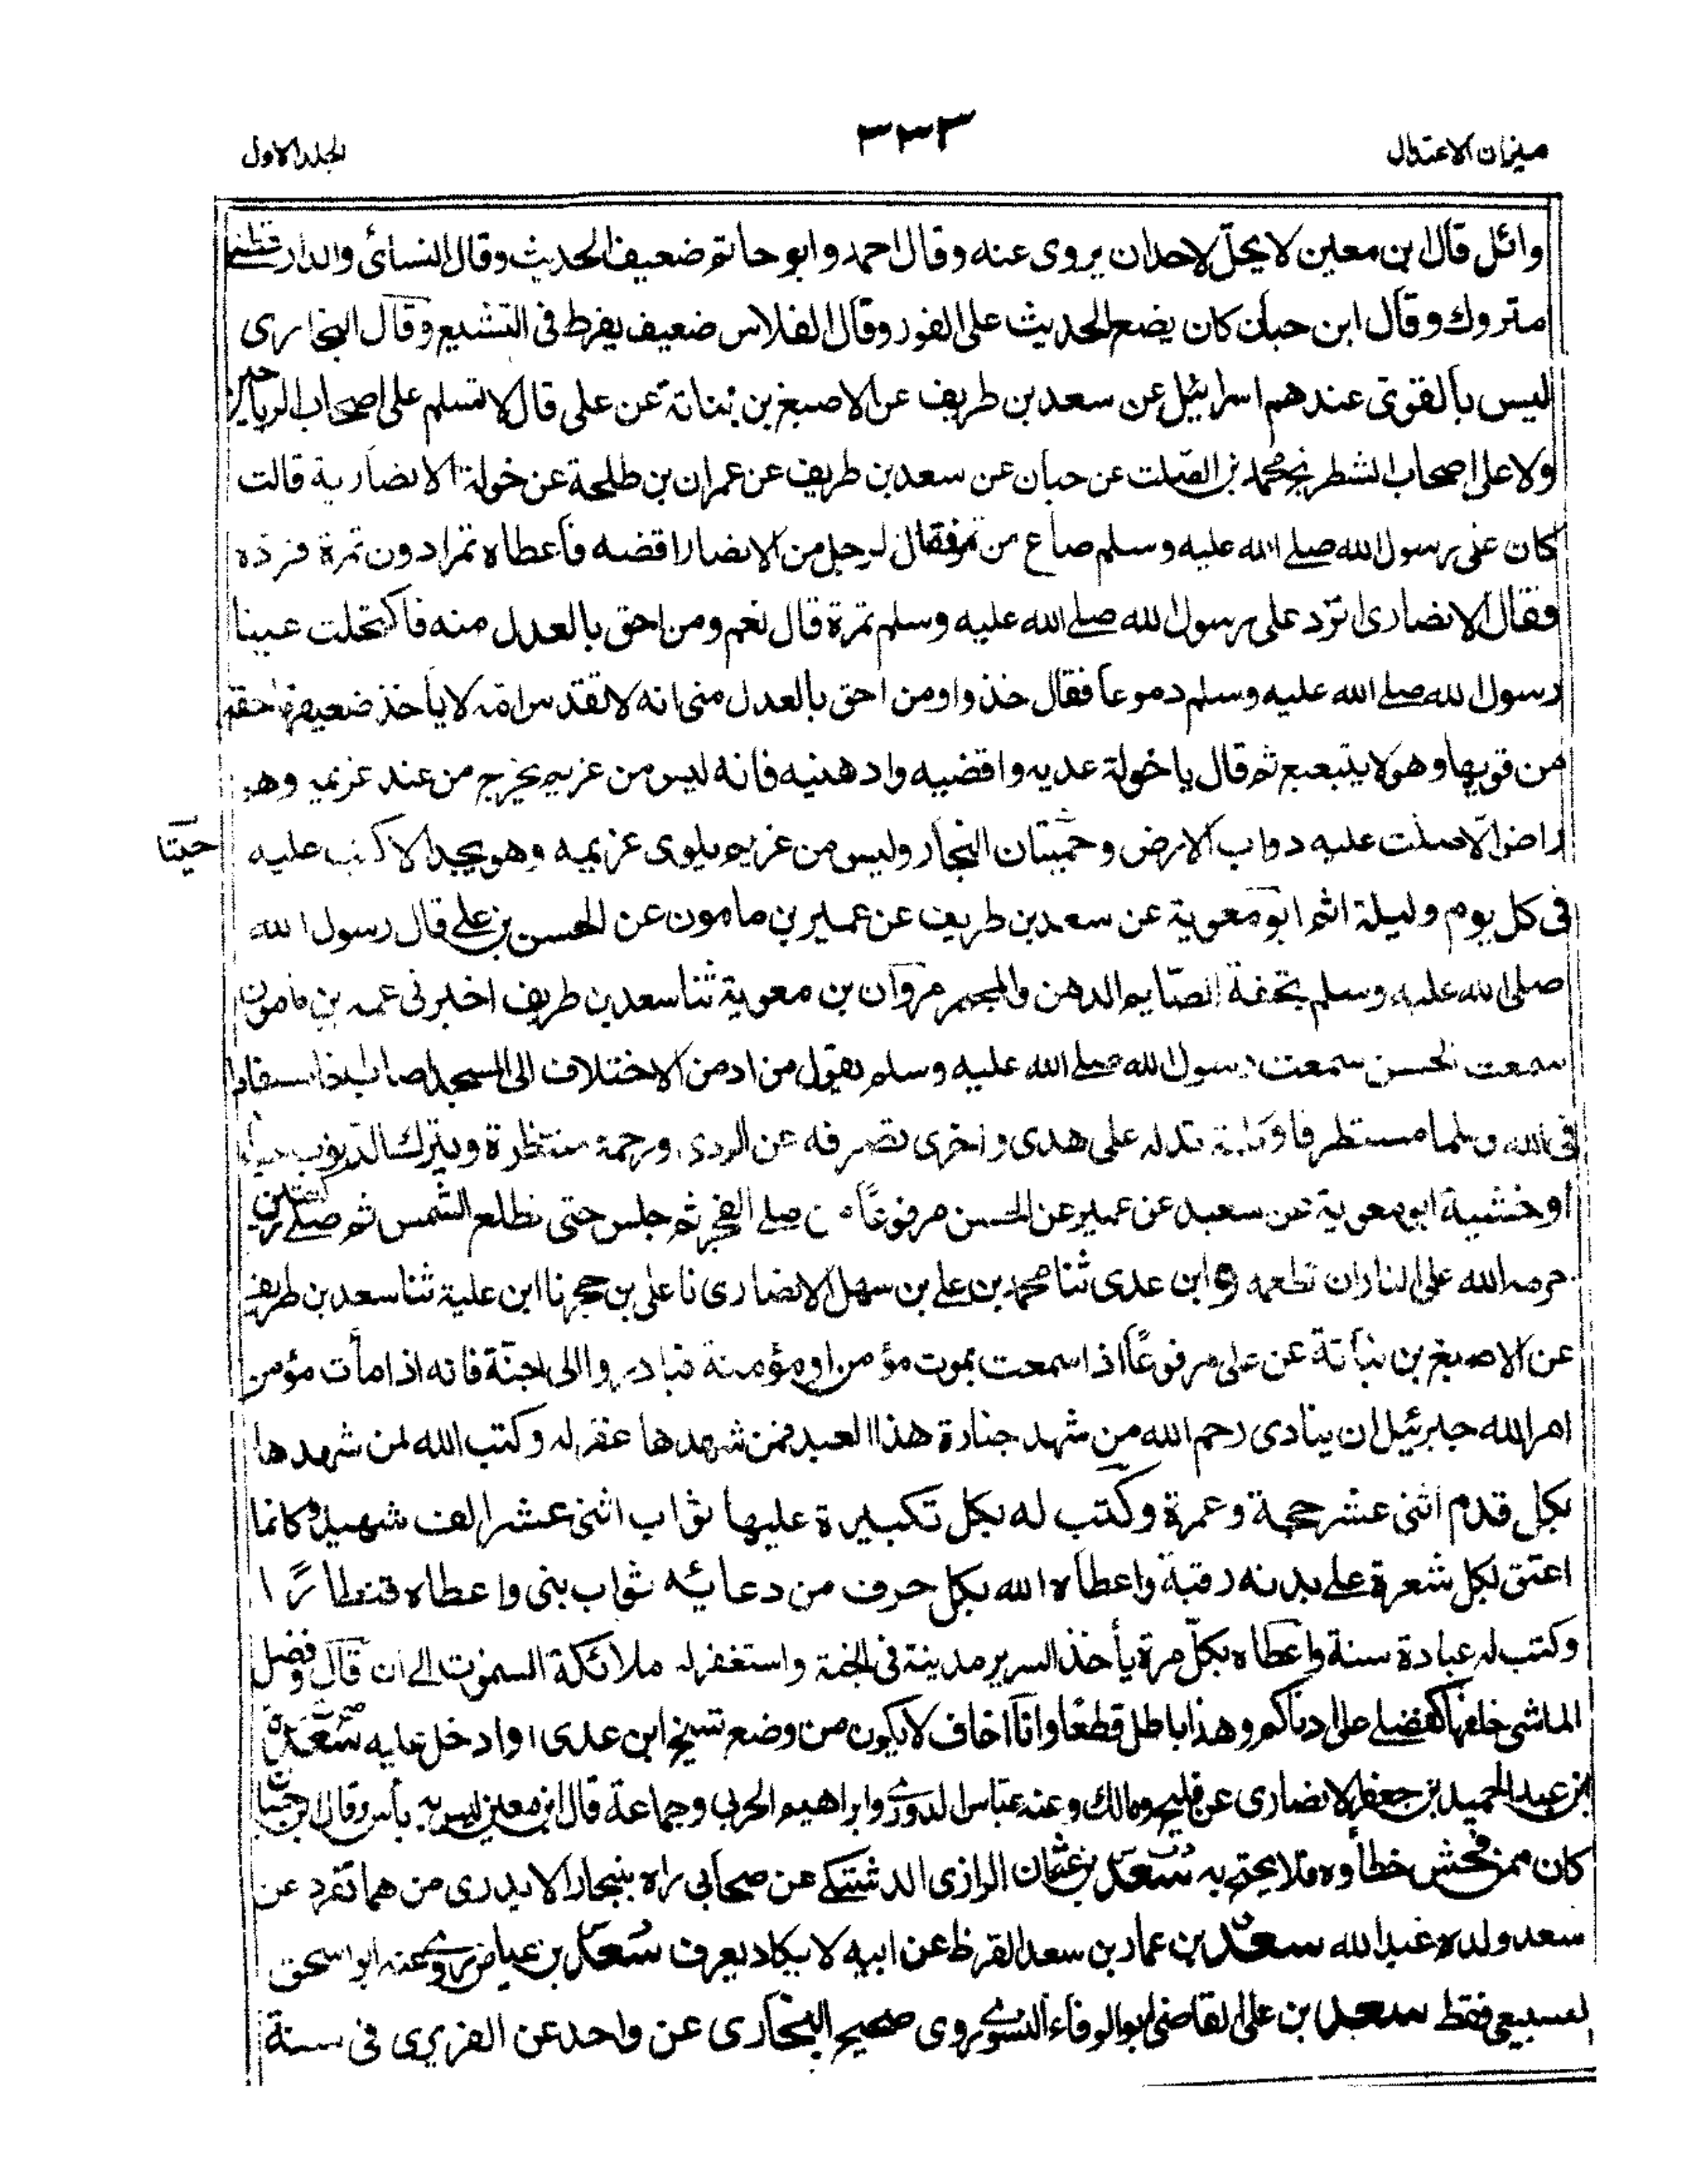 ميزان الاعتدال
٣٣٣
الجلد الاول
وائل قال ابن معين لا يحلّ لاحدان يروى عنه وقال احمد وابو حاتم ضعيف الحديث وقال النسائى والدارقطنى
متروك وقال ابن حبان كان يضع الحديث على الفور وقال الفلاس ضعيف يفرط فى التشيع وقال البخارى
ليس بالقوىّ عندهم اسرائيل عن سعد بن طريف عن الاصبغ بن نباتة عن على قال لا تسلم على اصحاب
ولا على اصحاب الشطرنج محمد بن الصّلت عن حبان عن سعد بن طريف عن عمران بن طلحة عن خولة الانصارية قالت
كان على رسول الله صلے الله عليه وسلم صاع من تمر فقال لرجل من الانصار اقضه فأعطاه تمرا دون تمرة فردّه
فقال الانصارى اتردّ على رسول الله صلے الله عليه وسلم تمرة قال نعم ومن احق بالعدل منه فاكتحلت عينا
رسول الله صلے الله عليه وسلم دموعا فقال خذوا ومن احق بالعدل منى انه لا تقدّس امّة لا يأخذ ضعيفها حقه
من قويها وهو لا يتبعبع ثم قال يا خولة عديه واقضيه وادهنيه فانه ليس من غريم يخرج من عند غريمه وهو
راض الّا صلت عليه دواب الارض وحيتان البحار وليس من غريم يلوى غريمه وهو يجد الا كتب عليه
حيتا
فى كل يوم وليلة اثم ابو معوية عن سعد بن طريف عن عمير بن مامون عن الحسن بن علے قال رسول الله
صلى الله عليه وسلم تحفة الصّايم الدهن والمجمر مروان بن معوية ثنا سعد بن طريف اخبرنى عمير بن مامون
سمعت الحسن سمعت رسول الله صلے الله عليه وسلم يقول من ادمن الاختلاف الى المسجد اصاب اخا مستفادا
فى الله وعلما مستطرفا وكلمة تدله على هدى واخرى تصرفه عن الردى ورحمة منتظرة ويترك الذنوب حياء
أو خشية ابو معوية عن سعيد عن عمير عن الحسن مرفوعًا من صلے الفجر ثم جلس حتى تطلع الشمس ثم صلے ركعتين
حرمه الله على النار ان تطعمه وابن عدى ثنا محمد بن علے بن سهل الانصارى نا على بن حجر نا ابن علية ثنا سعد بن طريف
عن الاصبغ بن نباتة عن على مرفوعًا اذا سمعت بموت مؤمن او مؤمنة فبادروا الى الجنّة فانه اذا مات مؤمن
امر الله جبرئيل ان ينادى رحم الله من شهد جنازة هذا العبد فمن شهدها غفر له وكتب الله لمن شهدها
بكل قدم اثنى عشر حجة وعمرة وكتب له بكل تكبيرة عليها ثواب اثنى عشر الف شهيد وكانما
اعتق لكل شعرة علے بدنه رقبة واعطاه الله بكل حرف من دعائه ثواب نبى واعطاه قنطارًا
وكتب له عبادة سنة واعطاه بكلّ مرة يأخذ السرير مدينة فى الجنة واستغفر له ملائكة السموت الے ان قال وفضل
الماشى خلفها كفضلے على ادناكم وهذا باطل قطعًا وانا اخاف لا يكون من وضع شيخ ابن عدى او ادخل عليه سعد
بن عبد الحميد بن جعفر الانصارى عن فليح ومالك وعنه عباس الدورے وابراهيم الحربى وجماعة قال ابن معين ليس به بأس وقال ابن حبان
كان ممن فحش خطأوه فلا يحتج به سعد بن عثمان الرازى الدشتكے عن صحابى راه ببخارا لا يدرى من هما تفرد عن
سعد ولده عبد الله سعد بن عمار بن سعد القرظ عن ابيه لا يكاد يعرف سعد بن عياض روے عنه ابو اسحق
لسبيعى فقط سعد بن على القاضى ابو الوفاء النسوے روى صحيح البخارى عن واحد عن الفربرى فى سنة